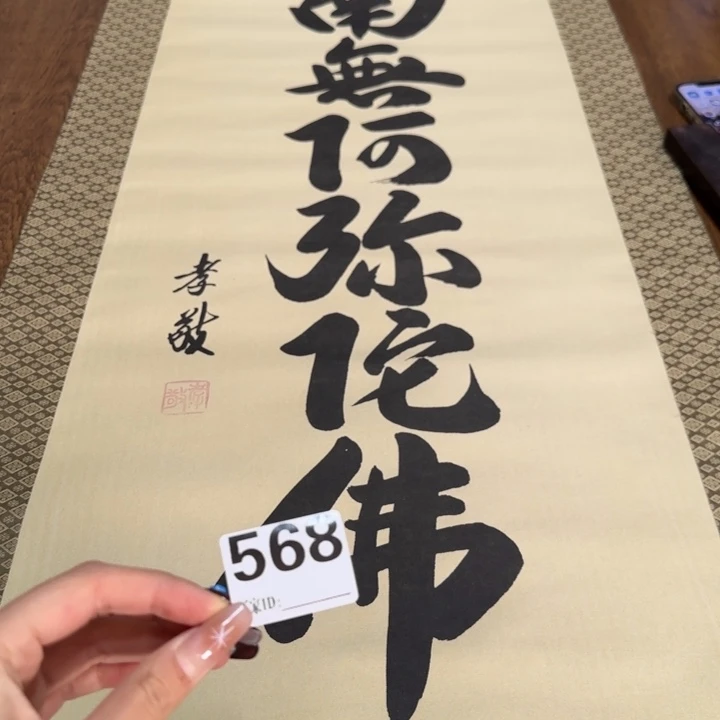 南無阿弥陀佛
孝敬
568
家ID: